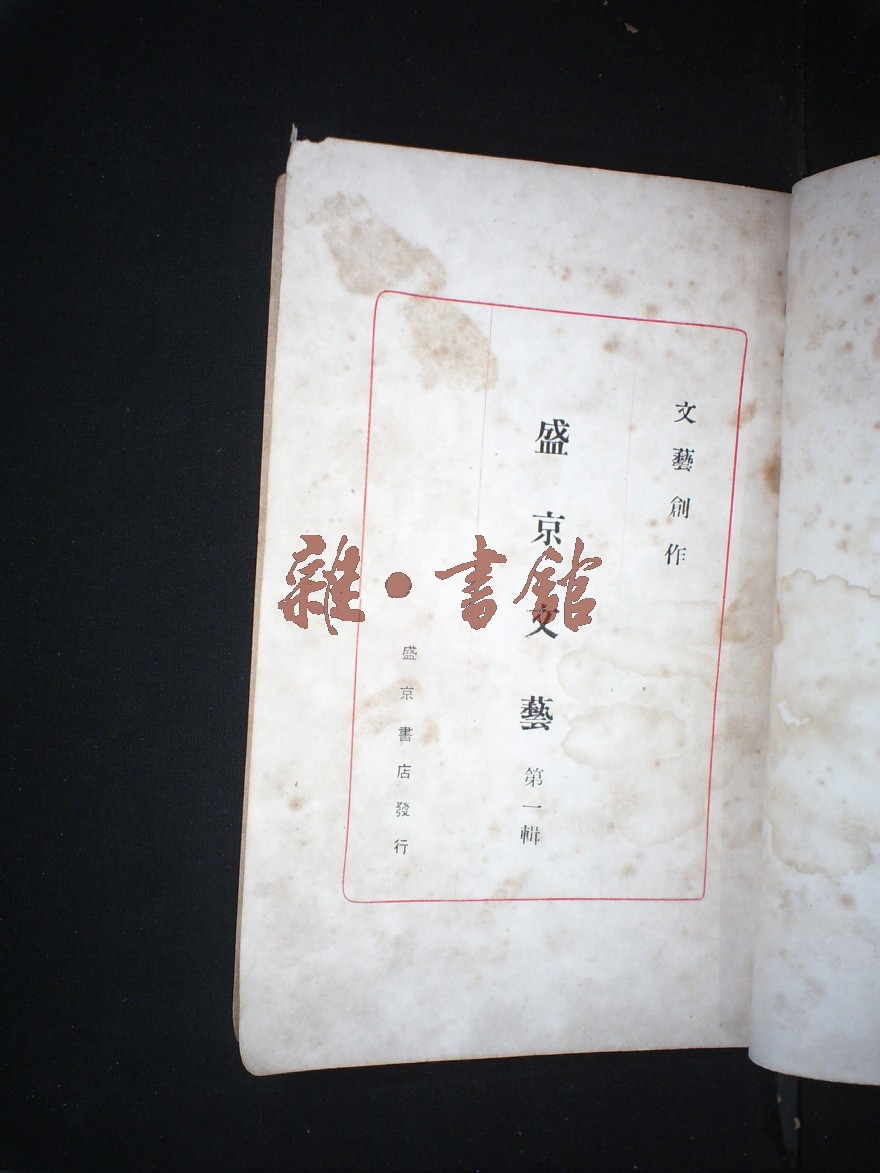 文藝創作
盛京文藝 第一輯
盛京書店發行
雜·書館